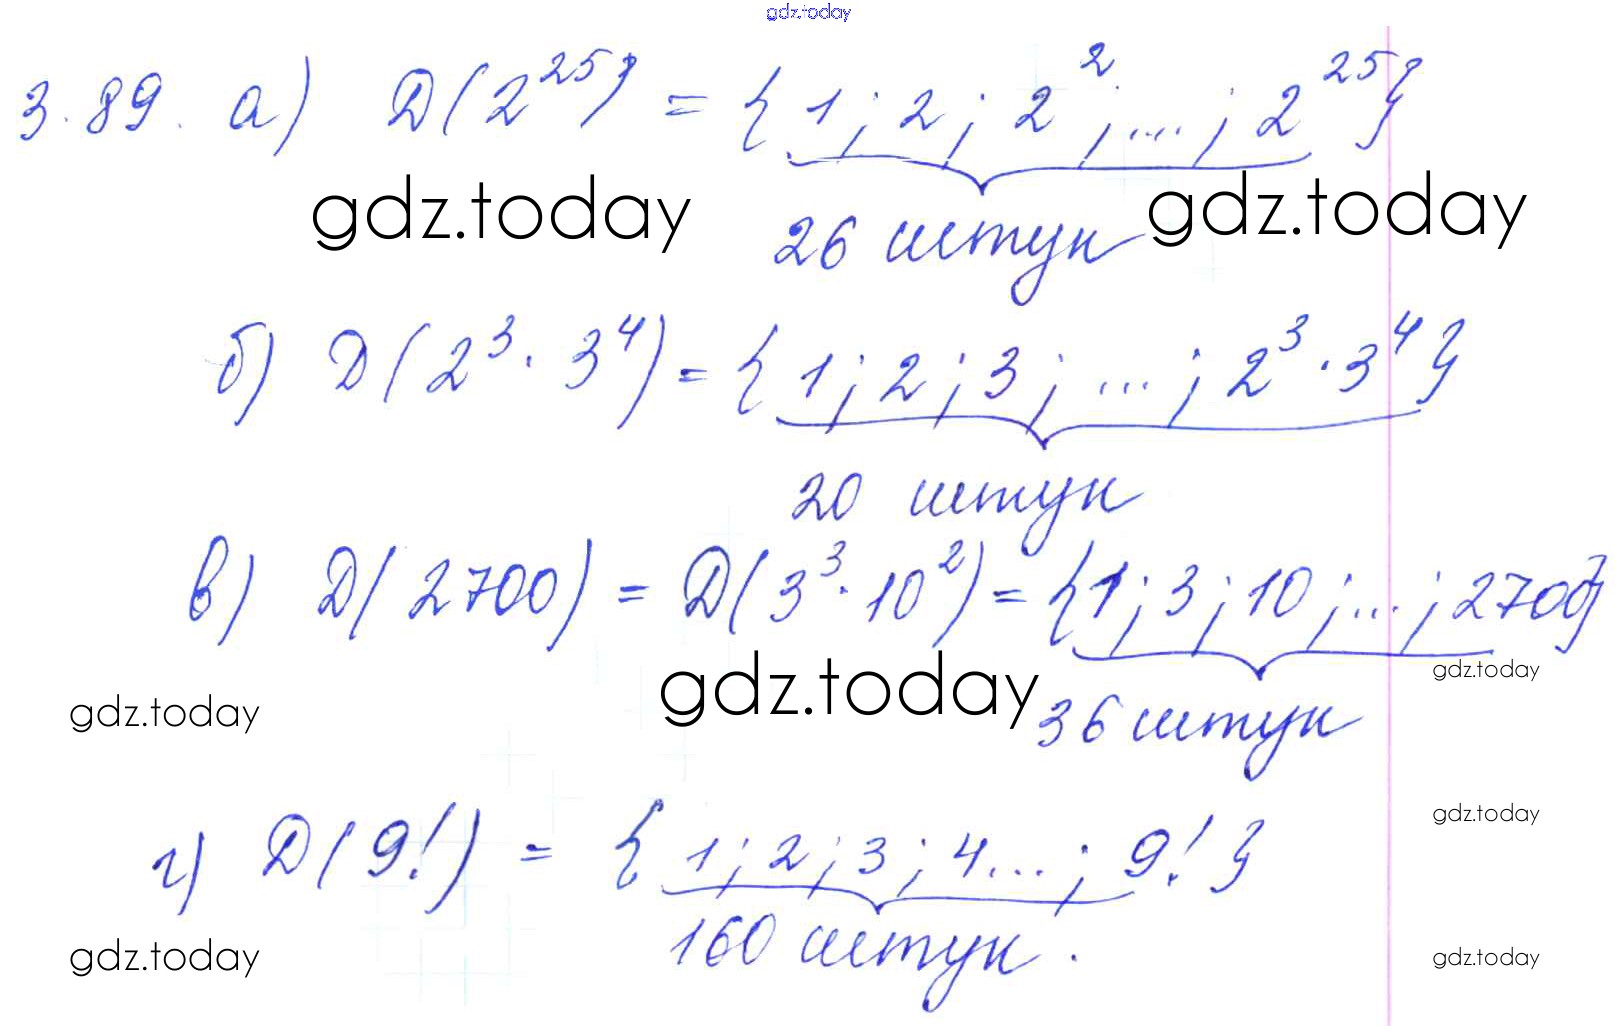 gdz.today
3.89. а) D(2^25) = {1; 2; 2^2; ...; 2^25}
gdz.today gdz.today
26 штук
б) D(2^3 · 3^4) = {1; 2; 3; ...; 2^3 · 3^4}
20 штук
в) D(2700) = D(3^3 · 10^2) = {1; 3; 10; ...; 2700}
gdz.today gdz.today gdz.today
36 штук
gdz.today
г) D(9!) = {1; 2; 3; 4...; 9!}
160 штук.
gdz.today gdz.today